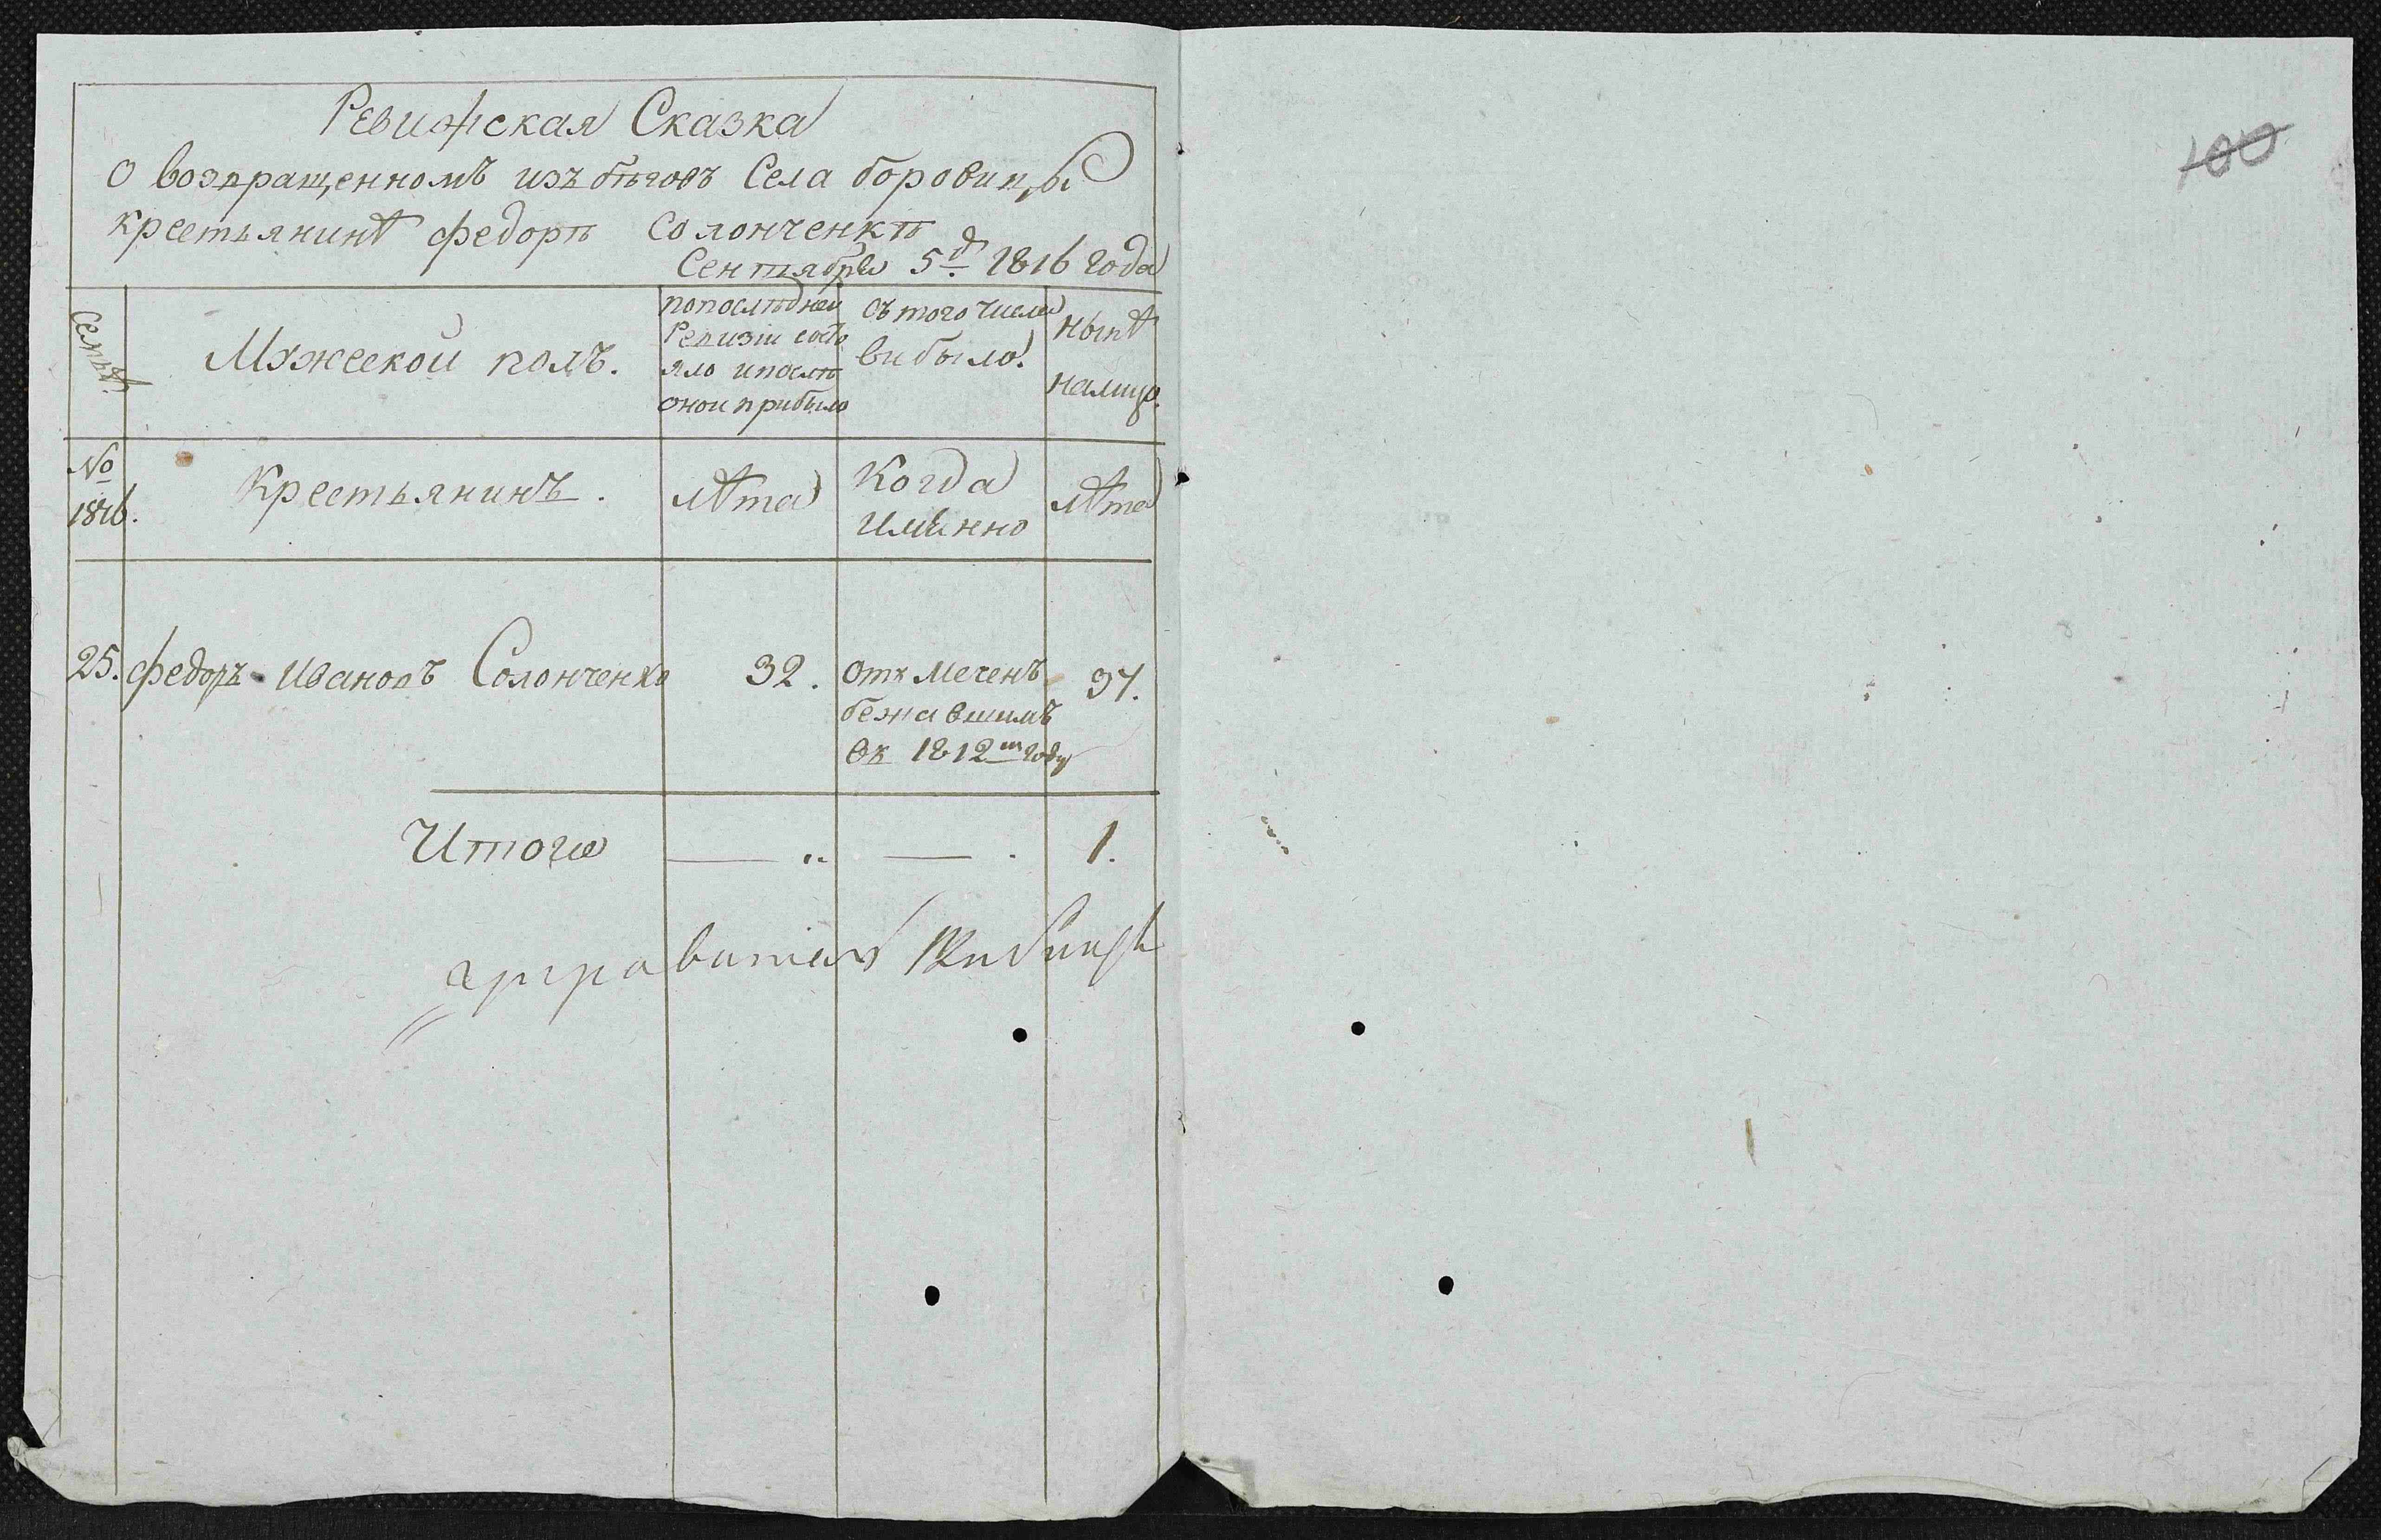 Ревижская Сказка
О возвращенномъ изъ бѣговъ Села боровицы
крестьянинѣ федорѣ Солонченкѣ
Сентября 5д 1816 года
Семьи. Мужеской полъ.
попослѣдней
Ревизіи состо
яло ипослѣ
оной прибыло
съ того числа
выбыло.
нынѣ
налицо.
№
1816.
Крестьянинъ.
лѣта
Когда
именно
лѣта
25. федоръ Ивановъ Солонченко 32. отмеченъ 37.
бежавшимъ
въ 1812м году
Итого — „ — . 1.
100